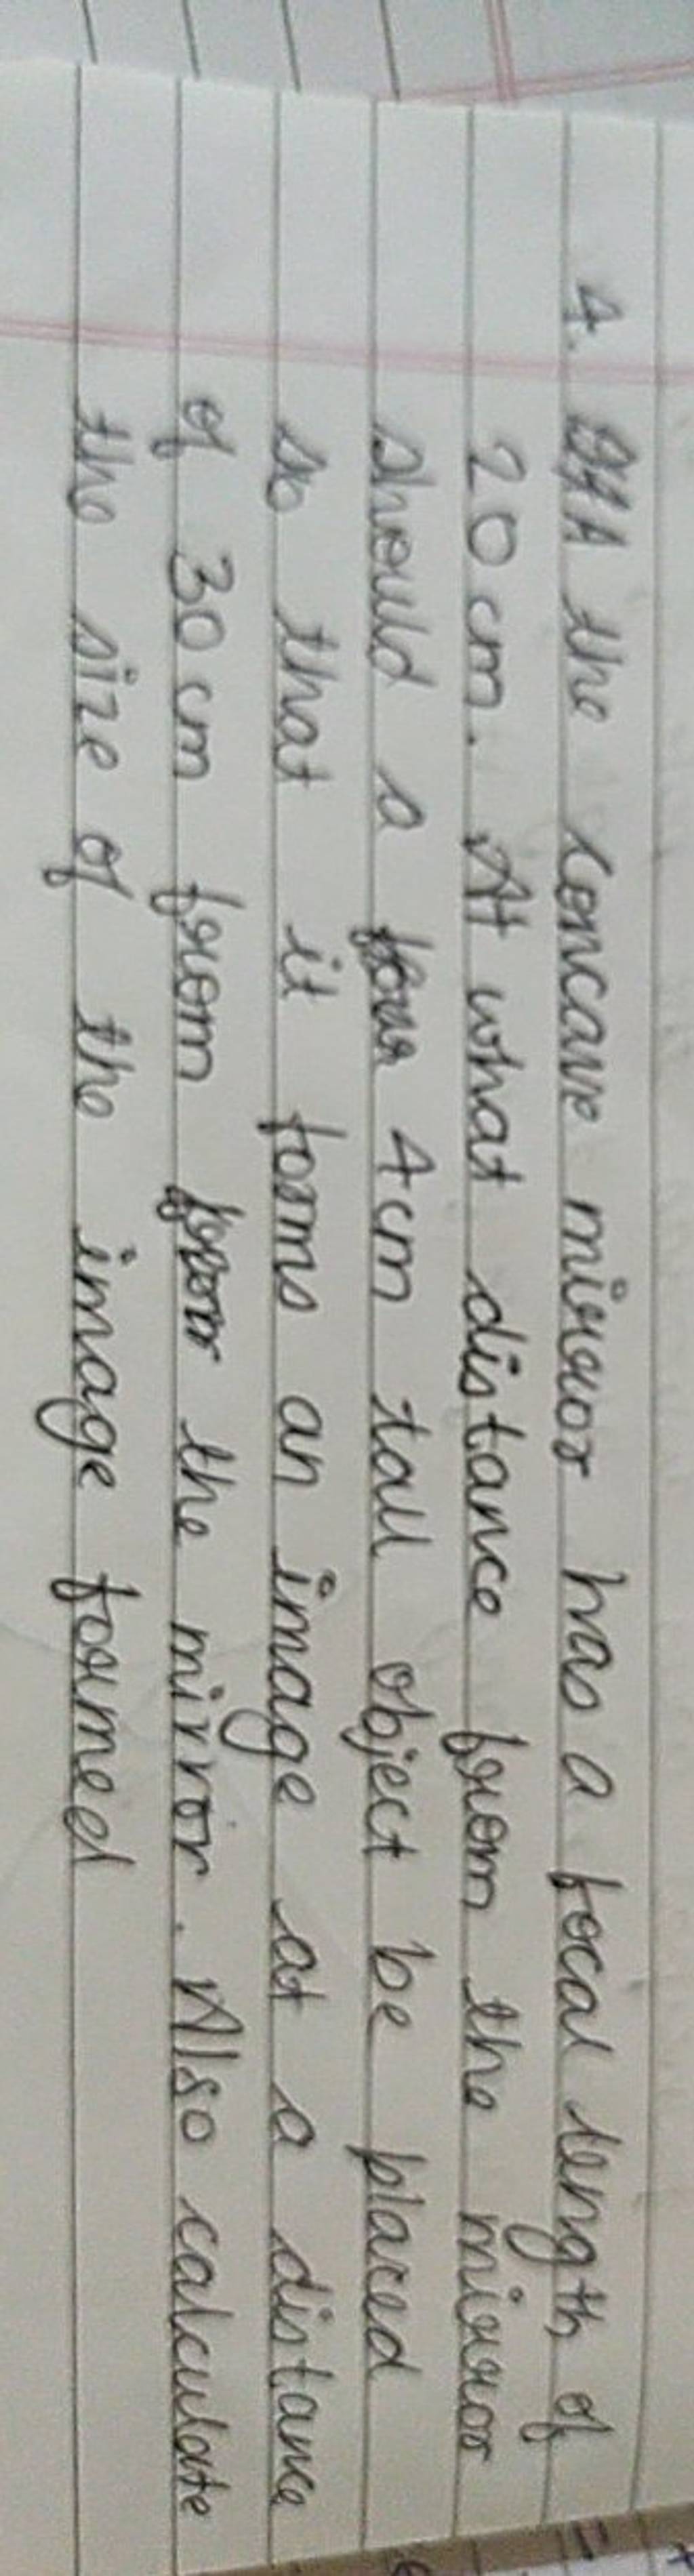 4. A the concave mirror has a focal length of
20 cm. At what distance from the mirror
should a 4cm tall object be placed
so that it forms an image at a distance
of 30 cm from the mirror. Also calculate
the size of the image formed